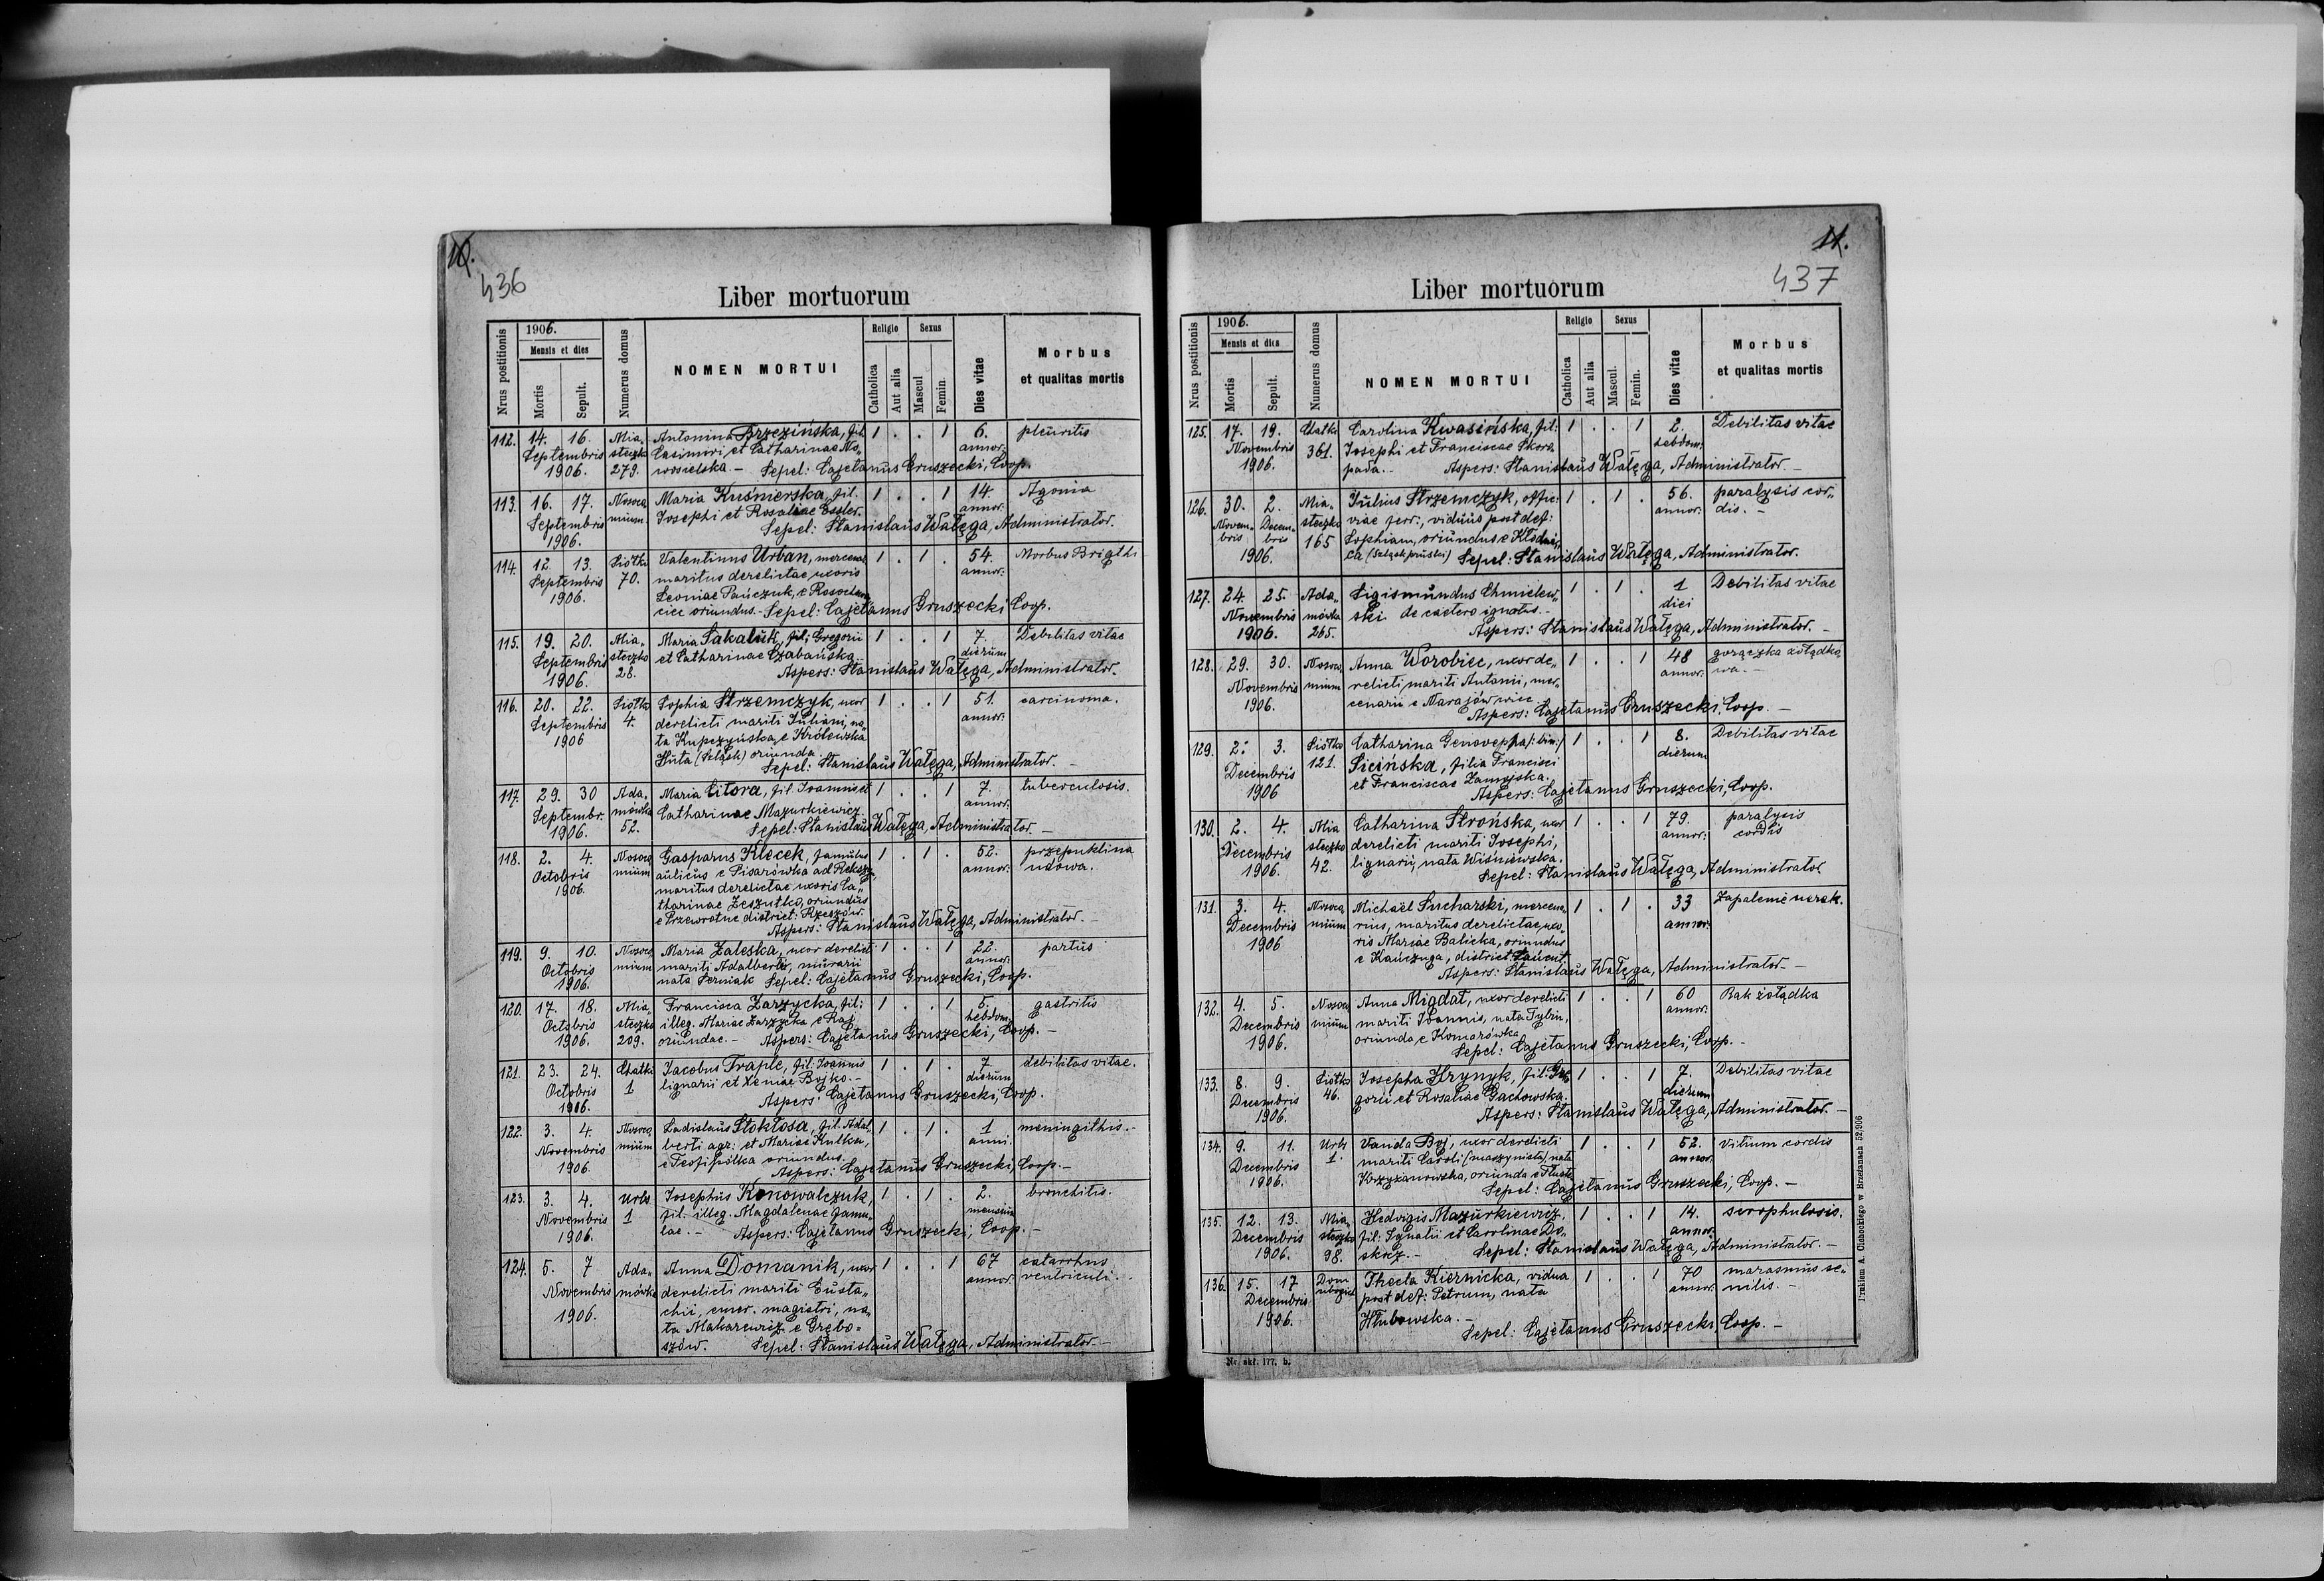 10.
436
Liber mortuorum
Nrus postitionis
1906.
Mensis et dies
Mortis
Sepult.
Numerus domus
NOMEN MORTUI
Religio
Catholica
Aut alia
Sexus
Mascul
Femin.
Dies vitae
Morbus
et qualitas mortis
112. 14. 16. Mia„ Antonina Brzezińska, fil. 1 . . 1 6. pleuritis
Septembris steczko Casimiri et Catharinae No„ annor.
1906. 279. wosielska. – Sepel: Cajetanus Gruszecki, Coop.
113. 16. 17. Nosoco„ Maria Kuśnierska, fil. 1 . . 1 14. Agonia
Septembris mium Josephi et Rosaliae Essler. annor.
1906. Sepel: Stanislaus Wałęga, Administrator.
114. 12. 13. Siółko Valentinus Urban, mercenar. 1 . 1 . 54. Morbus Brigthi
Septembris 70. maritus derelictae uxoris annor:
1906. Leoniae Pańczuk, e Rosochow„
ciec oriundus. – Sepel: Cajetanus Gruszecki Coop.
115. 19. 20. Mia„ Maria Sakaluk, fil: Gregorii 1 . . 1 7. Debilitas vitae
Septembris steczko et Catharinae Czabańska. dierum
1906. 28. Aspers: Stanislaus Wałęga, Administrator.
116. 20. 22. Siółko Sophia Strzemczyk, uxor 1 . . 1 51. carcinoma.
Septembris 4. derelicti mariti Juliani, na„ annor.
1906 ta Kupczyńska, e Królewska
Huta (Sląsk) oriunda.
Sepel: Stanislaus Wałęga, Administrator. –
117. 29. 30 Ada„ Maria Citora, fil. Ioannis et 1 . . 1 7. tuberculosis.
Septembr. mówka Catharinae Mazurkiewicz annor.
1906. 52. Sepel: Stanislaus Wałęga, Administrator. –
118. 2. 4. Nosoco„ Gasparus Klecek, famulus 1 . 1 . 52. przepuklina
Octobris mium aulicus e Pisarówka ad Rekszyn, annor: udowa.
1906. maritus derelictae uxoris Ca„
tharinae Zeszutko, oriundus
e Przewrotne district: Rzeszów.
Aspers: Stanislaus Wałęga, Administrator. –
119. 9. 10. Nosoco„ Maria Zaleska, uxor derelicti 1 . . 1 22. partus
Octobris mium mariti Adalberti, murarii annor.
1906. nata Perniak Sepel: Cajetanus Gruszecki, Coop.
120. 17. 18. Mia„ Francisca Zarzycka, fil: 1 . . 1 5. gastritis
Octobris steczko illeg. Mariae Zarzycka e Raj hebdom.
1906. 209. oriundae. – Aspers: Cajetanus Gruszecki, Coop. –
121. 23. 24. Chatki Jacobus Traple, fil: Ioannis 1 . 1 . 7 debilitas vitae.
Octobris 1 lignarii et Xeniae Bojko. – dierum
1906. Aspers: Cajetanus Gruszecki, Coop.
122. 3. 4. Nosoco„ Ladislaus Stokłosa, fil. Adal„ 1 . 1 . 1 meningithis. –
Novembris mium berti agr: et Mariae Kulka, anni.
1906. e Teofipólka oriundus.
Aspers: Cajetanus Gruszecki, Coop. –
123. 3. 4. Urbs Josephus Konowalczuk, 1 . 1 . 2. bronchitis.
Novembris 1 fil: illeg. Magdalenae famu„ mensium
1906. lae. – Aspers: Cajetanus Gruszecki, Coop. –
124. 5. 7 Ada„ Anna Domanik, uxor 1 . . 1 67 catarrhus
Novembris mówka derelicti mariti Eusta„ annor: ventriculi. –
1906. chii, emer. magistri, na„
ta Makarewicz e Grębo=
szów. Sepel: Stanislaus Wałęga, Administrator. –
11.
437
Liber mortuorum
Nrus postitionis
1906.
Mensis et dies
Mortis
Sepult.
Numerus domus
NOMEN MORTUI
Religio
Catholica
Aut alia
Sexus
Mascul.
Femin.
Dies vitae
Morbus
et qualitas mortis
125. 17. 19. Chatki Carolina Kwasińska, fil: 1 . . 1 2. Debilitas vitae
Novembris 361. Josephi et Franciscae Skoro„ hebdom:
1906. pada. – Aspers: Stanislaus Wałęga, Administrator. –
126. 30. 2. Mia„ Julius Strzemczyk, offic: 1 . 1 . 56. paralysis cor„
Novem„ Decem„ steczko viae ferr:, viduus post def: annor: dis. –
bris bris 165 Sophiam, oriundus e Kłodni„
1906. ca (Szląsk pruski) Sepel: Stanislaus Wałęga, Administrator.
127. 24. 25. Ada„ Sigismundus Chmielew„ 1 . 1 . 1 Debilitas vitae
Novembris mówka ski de caetero ignotus. – diei
1906. 265. Aspers: Stanislaus Wałęga, Administrator. –
128. 29. 30. Nosoco„ Anna Worobiec, uxor de„ 1 . . 1 48 gorączka żołądko„
Novembris mium relicti mariti Antonii, mer„ annor. wa. –
1906. cenarii e Narajów wiec.
Aspers: Cajetanus Gruszecki, Coop. –
129. 2. 3. Siółko Catharina Genovepha /:bin:/ 1 . . 1 8. Debilitas vitae
Decembris 121. Sicińska, filia Francisci dierum
1906 et Franciscae Zamojska.
Aspers: Cajetanus Gruszecki, Coop.
130. 2. 4. Mia Catharina Strońska, uxor 1 . . 1 79. paralysis
Decembris steczko derelicti mariti Josephi, annor: cordis
1906. 42. lignarii, nata Wiśniewska.
Sepel: Stanislaus Wałęga, Administrator
131. 3. 4. Nosoco„ Michael Sucharski, mercena„ 1 . 1 . 33 Zapalenie nerek.
Decembris mium rius, maritus derelictae uxo„ annor.
1906 ris Mariae Balicka, oriundus
e Kańczuga, district. Łańcut.
Aspers: Stanislaus Wałęga, Administrator. –
132. 4. 5. Nosoco„ Anna Migdał, uxor derelicti 1 . . 1 60 Rak żołądka
Decembris mium mariti Ioannis, nata Tybin, annor.
1906. oriunda e Komarówka
Sepel: Cajetanus Gruszecki, Coop. –
133. 8. 9. Siółko Josepha Hrynyk, fil: Gre„ 1 . . 1 7. Debilitas vitae
Decembris 46. gorii et Rosaliae Gachowska. dierum
1906. Aspers: Stanislaus Wałęga, Administrator. –
134. 9. 11. Urbs Vanda Boj, uxor derelicti 1 . . 1 52. Vitium cordis
Decembris 1. mariti Caroli (maszynista) nata annor.
1906. Krzyżanowska, oriunda e Tłuste
Sepel: Cajetanus Gruszecki, Coop. –
135. 12. 13. Mia„ Hedvigis Mazurkiewicz, 1 . . 1 14. scrophulosis.
Decembris steczko fil: Ignatii et Carolinae Do„ annor.
1906. 98. skocz. – Sepel: Stanislaus Wałęga, Administrator. –
136. 15. 17 Dom Thecla Kiernicka, vidua 1 . . 1 70 marasmus se„
Decembris ubogich post def: Petrum, nata annor. nilis. –
1906. Hłubowska. –
Sepel: Cajetanus Gruszecki, Coop. –
Nr. skł. 177. b.
Drukiem A. Olabockiego w Brzeżanach 52/906